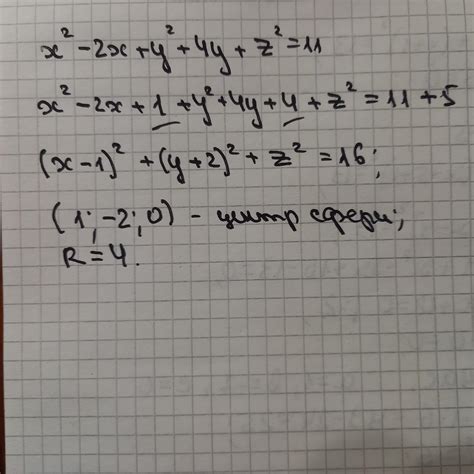 x² - 2x + y² + 4y + z² = 11
x² - 2x + 1 + y² + 4y + 4 + z² = 11 + 5
(x - 1)² + (y + 2)² + z² = 16;
(1; -2; 0) - центр сфери;
R = 4.